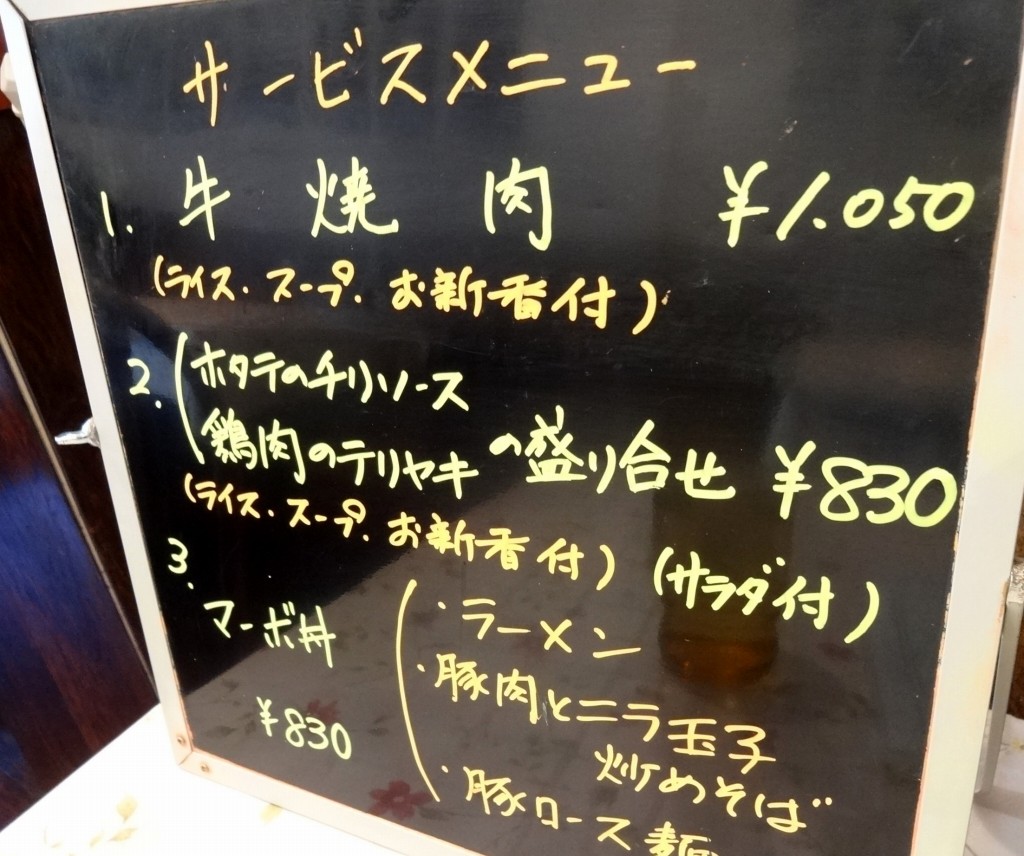 サービスメニュー
1. 牛焼肉 ¥1.050
(ライス・スープ・お新香付)
2. (ホタテのチリソース
鶏肉のテリヤキ の盛り合せ ¥830
(ライス・スープ・お新香付) (サラダ付)
3. マーボ丼 ¥830
(・ラーメン
・豚肉とニラ玉子
炒めそば
・豚ロース麺